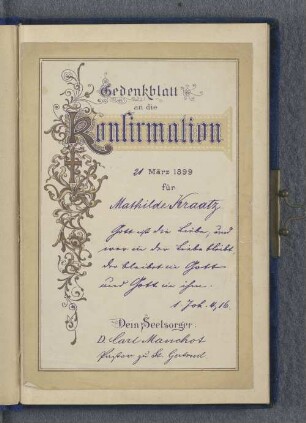 Gedenkblatt
an die
Konfirmation
21 März 1899
für
Mathilde Kraatz
Gott ist die Liebe, und
wer in der Liebe bleibt
der bleibet in Gott
und Gott in ihm.
1 Joh. 4, 16.
Dein Seelsorger:
D. Carl Manchot
Pastor zu St. Gertrud